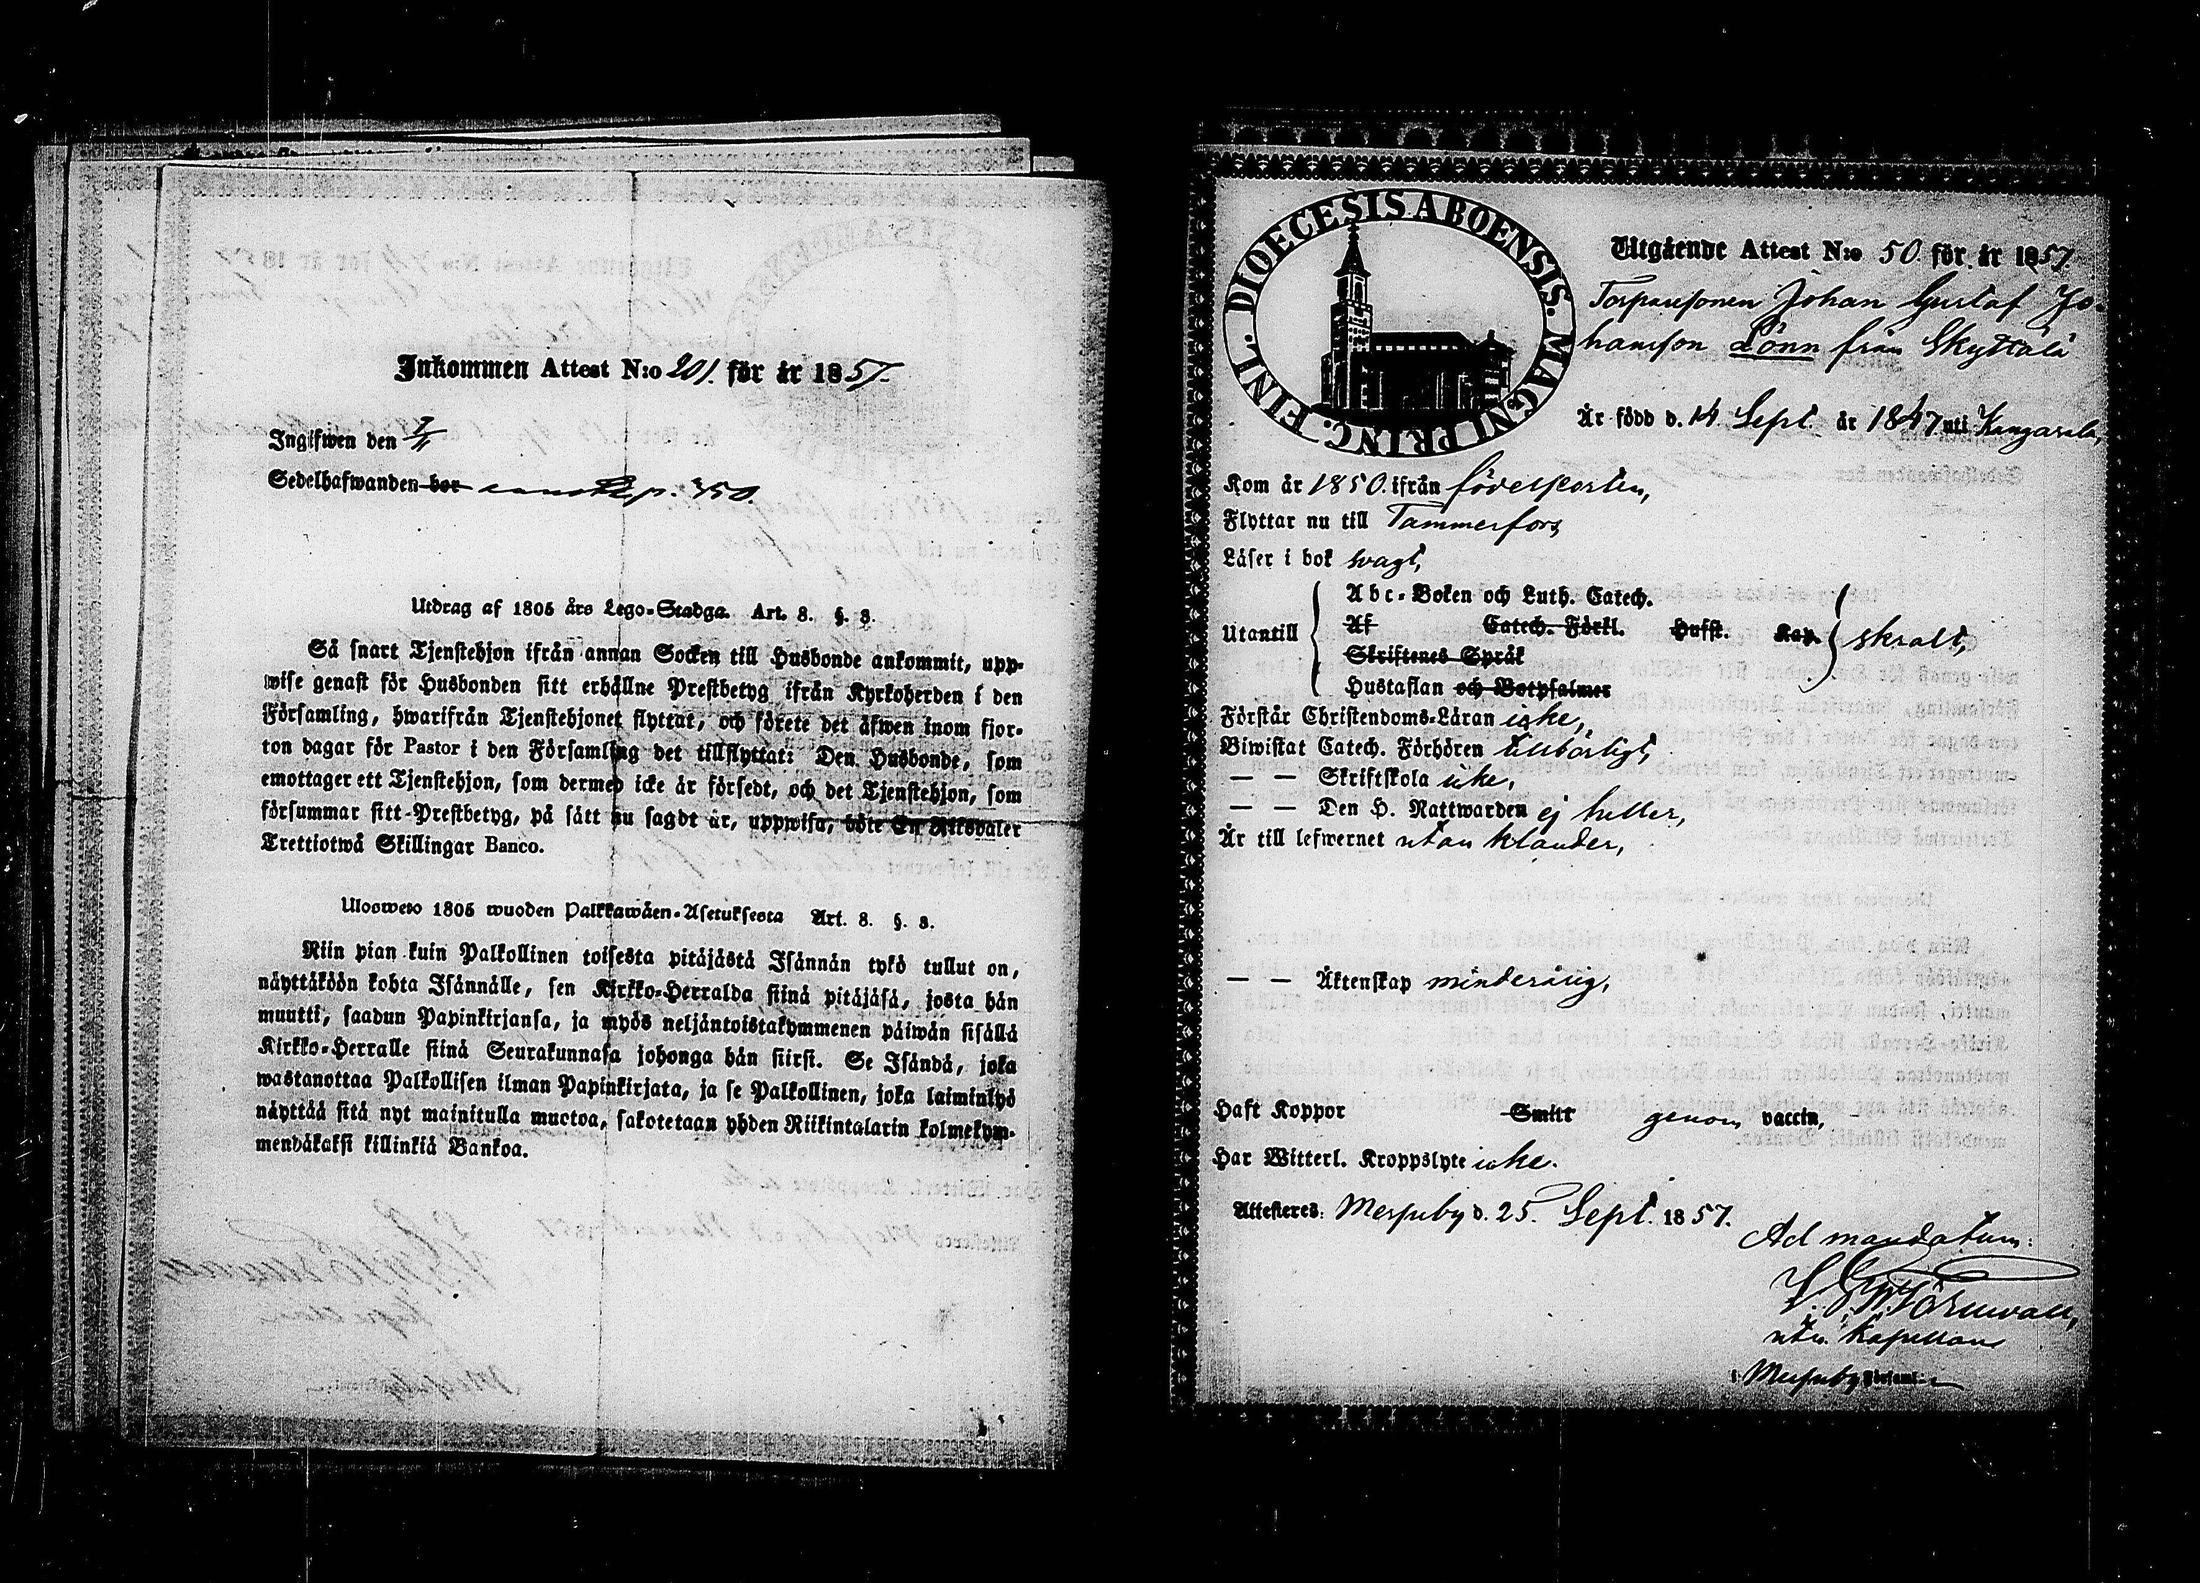 Inkommen Attest N:o 201. för år 1857.
Ingifwen den 7/11
Sedelhafwanden bor pag. 350.
Utdrag af 1805 års Lego-Stadga. Art. 8. §. 3.
Så snart Tjenstehjon ifrån annan Socken till Husbonde ankommit, upp-
wise genast för Husbonden sitt erhållne Prestbetyg ifrån Kyrkoherden i den
Församling, hwarifrån Tjenstehjonet flyttat, och förete det äfwen inom fjor-
ton dagar för Pastor i den Församling det tillflyttat: Den Husbonde, som
emottager ett Tjenstehjon, som dermed icke är försedt, och det Tjenstehjon, som
försummar sitt Prestbetyg, på sätt nu sagdt är, uppwisa, böte En Riksdaler
Trettiotwå Skillingar Banco.
Ulosweto 1805 wuoden Palkkawäen-Asetuksesta Art. 8. §. 3.
Niin pian kuin Palkollinen toisesta pitäjästä Isännän tykö tullut on,
näyttäköön kohta Isännälle, sen Kirkko-Herralda siinä pitäjäsä, josta hän
muutti, saadun Papinkirjansa, ja myös neljäntoistakymmenen päiwän sisällä
Kirkko-Herralle siinä Seurakunnasa johonga hän siirsi. Se Isändä, joka
wastanottaa Palkollisen ilman Papinkirjata, ja se Palkollinen, joka laiminlyö
näyttää sitä nyt mainitulla muotoa, sakotetaan yhden Riikintalarin kolmekym-
mendäkaksi killinkiä Bankoa.
DIOECESIS ABOENSIS. MAGNI PRINC. FINL.
Utgående Attest N:o 50. för år 1857.
Torparesonen Johan Gustaf Jo-
hansson Lönn från Skyttälä
Är född d. 14 Sept. år 1847 uti Kangasala,
Kom år 1850. ifrån födelseorten,
Flyttar nu till Tammerfors,
Läser i bok swagt,
Abc-Boken och Luth. Catech.
Utantill Af Catech. Förkl. Husst. Kap. skralt,
Skriftenes Språk
Hustaflan och Botpsalmer
Förstår Christendoms-Läran icke,
Biwistat Catech. Förhören tillbörligt,
— — Skriftskola icke,
— — Den H. Nattwarden ej heller,
Är till lefwernet utan klander,
— — Äktenskap minderårig,
Haft Koppor Smitt genom vaccin,
Har Witterl. Kroppslyte icke.
Attesteres: Messuby d. 25. Sept. 1857.
Ad mandatum:
Törnwall,
Kapellans
i Messuby Församl.